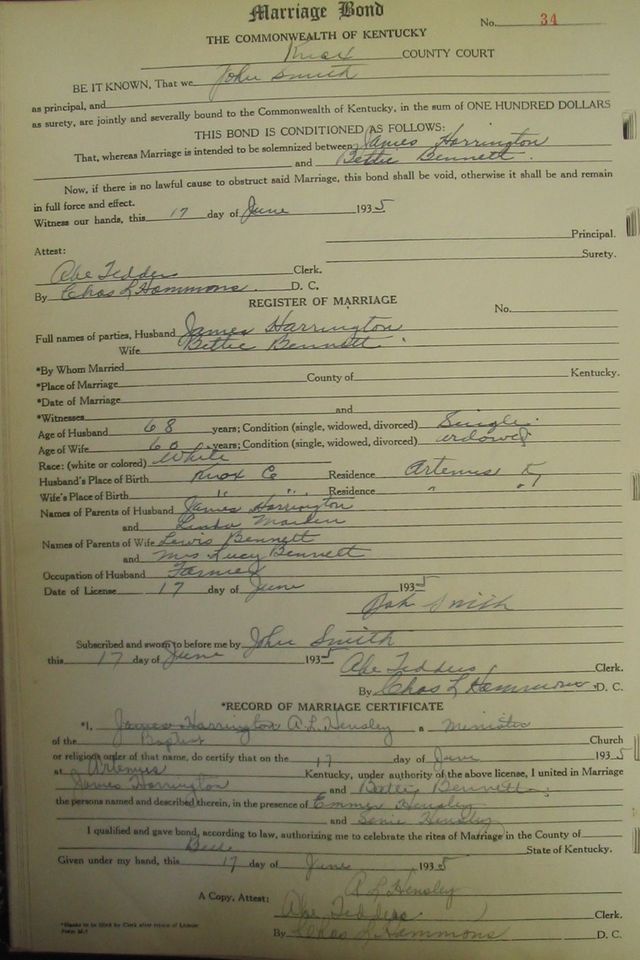 Marriage Bond
No. 34
THE COMMONWEALTH OF KENTUCKY
Knox COUNTY COURT
BE IT KNOWN, That we John Smith
as principal, and
as surety, are jointly and severally bound to the Commonwealth of Kentucky, in the sum of ONE HUNDRED DOLLARS
THIS BOND IS CONDITIONED AS FOLLOWS:
That, whereas Marriage is intended to be solemnized between James Harrington
and Bettie Bennett
Now, if there is no lawful cause to obstruct said Marriage, this bond shall be void, otherwise it shall be and remain
in full force and effect.
Witness our hands, this 17 day of June 1935
Principal.
Surety.
Attest:
Abe Tedders Clerk.
By Chas L Hammons. D. C.
REGISTER OF MARRIAGE
No.
Full names of parties, Husband James Harrington
Wife Bettie Bennett
*By Whom Married
*Place of Marriage County of Kentucky.
*Date of Marriage
*Witnesses and
Age of Husband 68 years; Condition (single, widowed, divorced) Single
Age of Wife 60 years; Condition (single, widowed, divorced) widowed
Race: (white or colored) White
Husband's Place of Birth Knox Co Residence Artemus Ky
Wife's Place of Birth " " Residence " "
Names of Parents of Husband James Harrington
and Linda
Names of Parents of Wife Lewis Bennett
and Mrs Lucy Bennett
Occupation of Husband Farmer
Date of License 17 day of June 1935
Smith
Subscribed and sworn to before me by John Smith
this 17 day of June 1935 Abe Tedders Clerk.
By Chas L Hammons. D. C.
*RECORD OF MARRIAGE CERTIFICATE
*I, James Harrington A. L. Hensley a Minister
of the Baptist Church
or religious order of that name, do certify that on the 17 day of June 1935
at Artemus Kentucky, under authority of the above license, I united in Marriage
James Harrington and Bettie Bennett
the persons named and described therein, in the presence of Emmer Hensley
and Hensley
I qualified and gave bond, according to law, authorizing me to celebrate the rites of Marriage in the County of
Bell State of Kentucky.
Given under my hand, this 17 day of June 1935
A L Hensley
A Copy, Attest: Abe Tedders Clerk.
*Blanks to be filled by Clerk after return of License
By Chas L Hammons D. C.